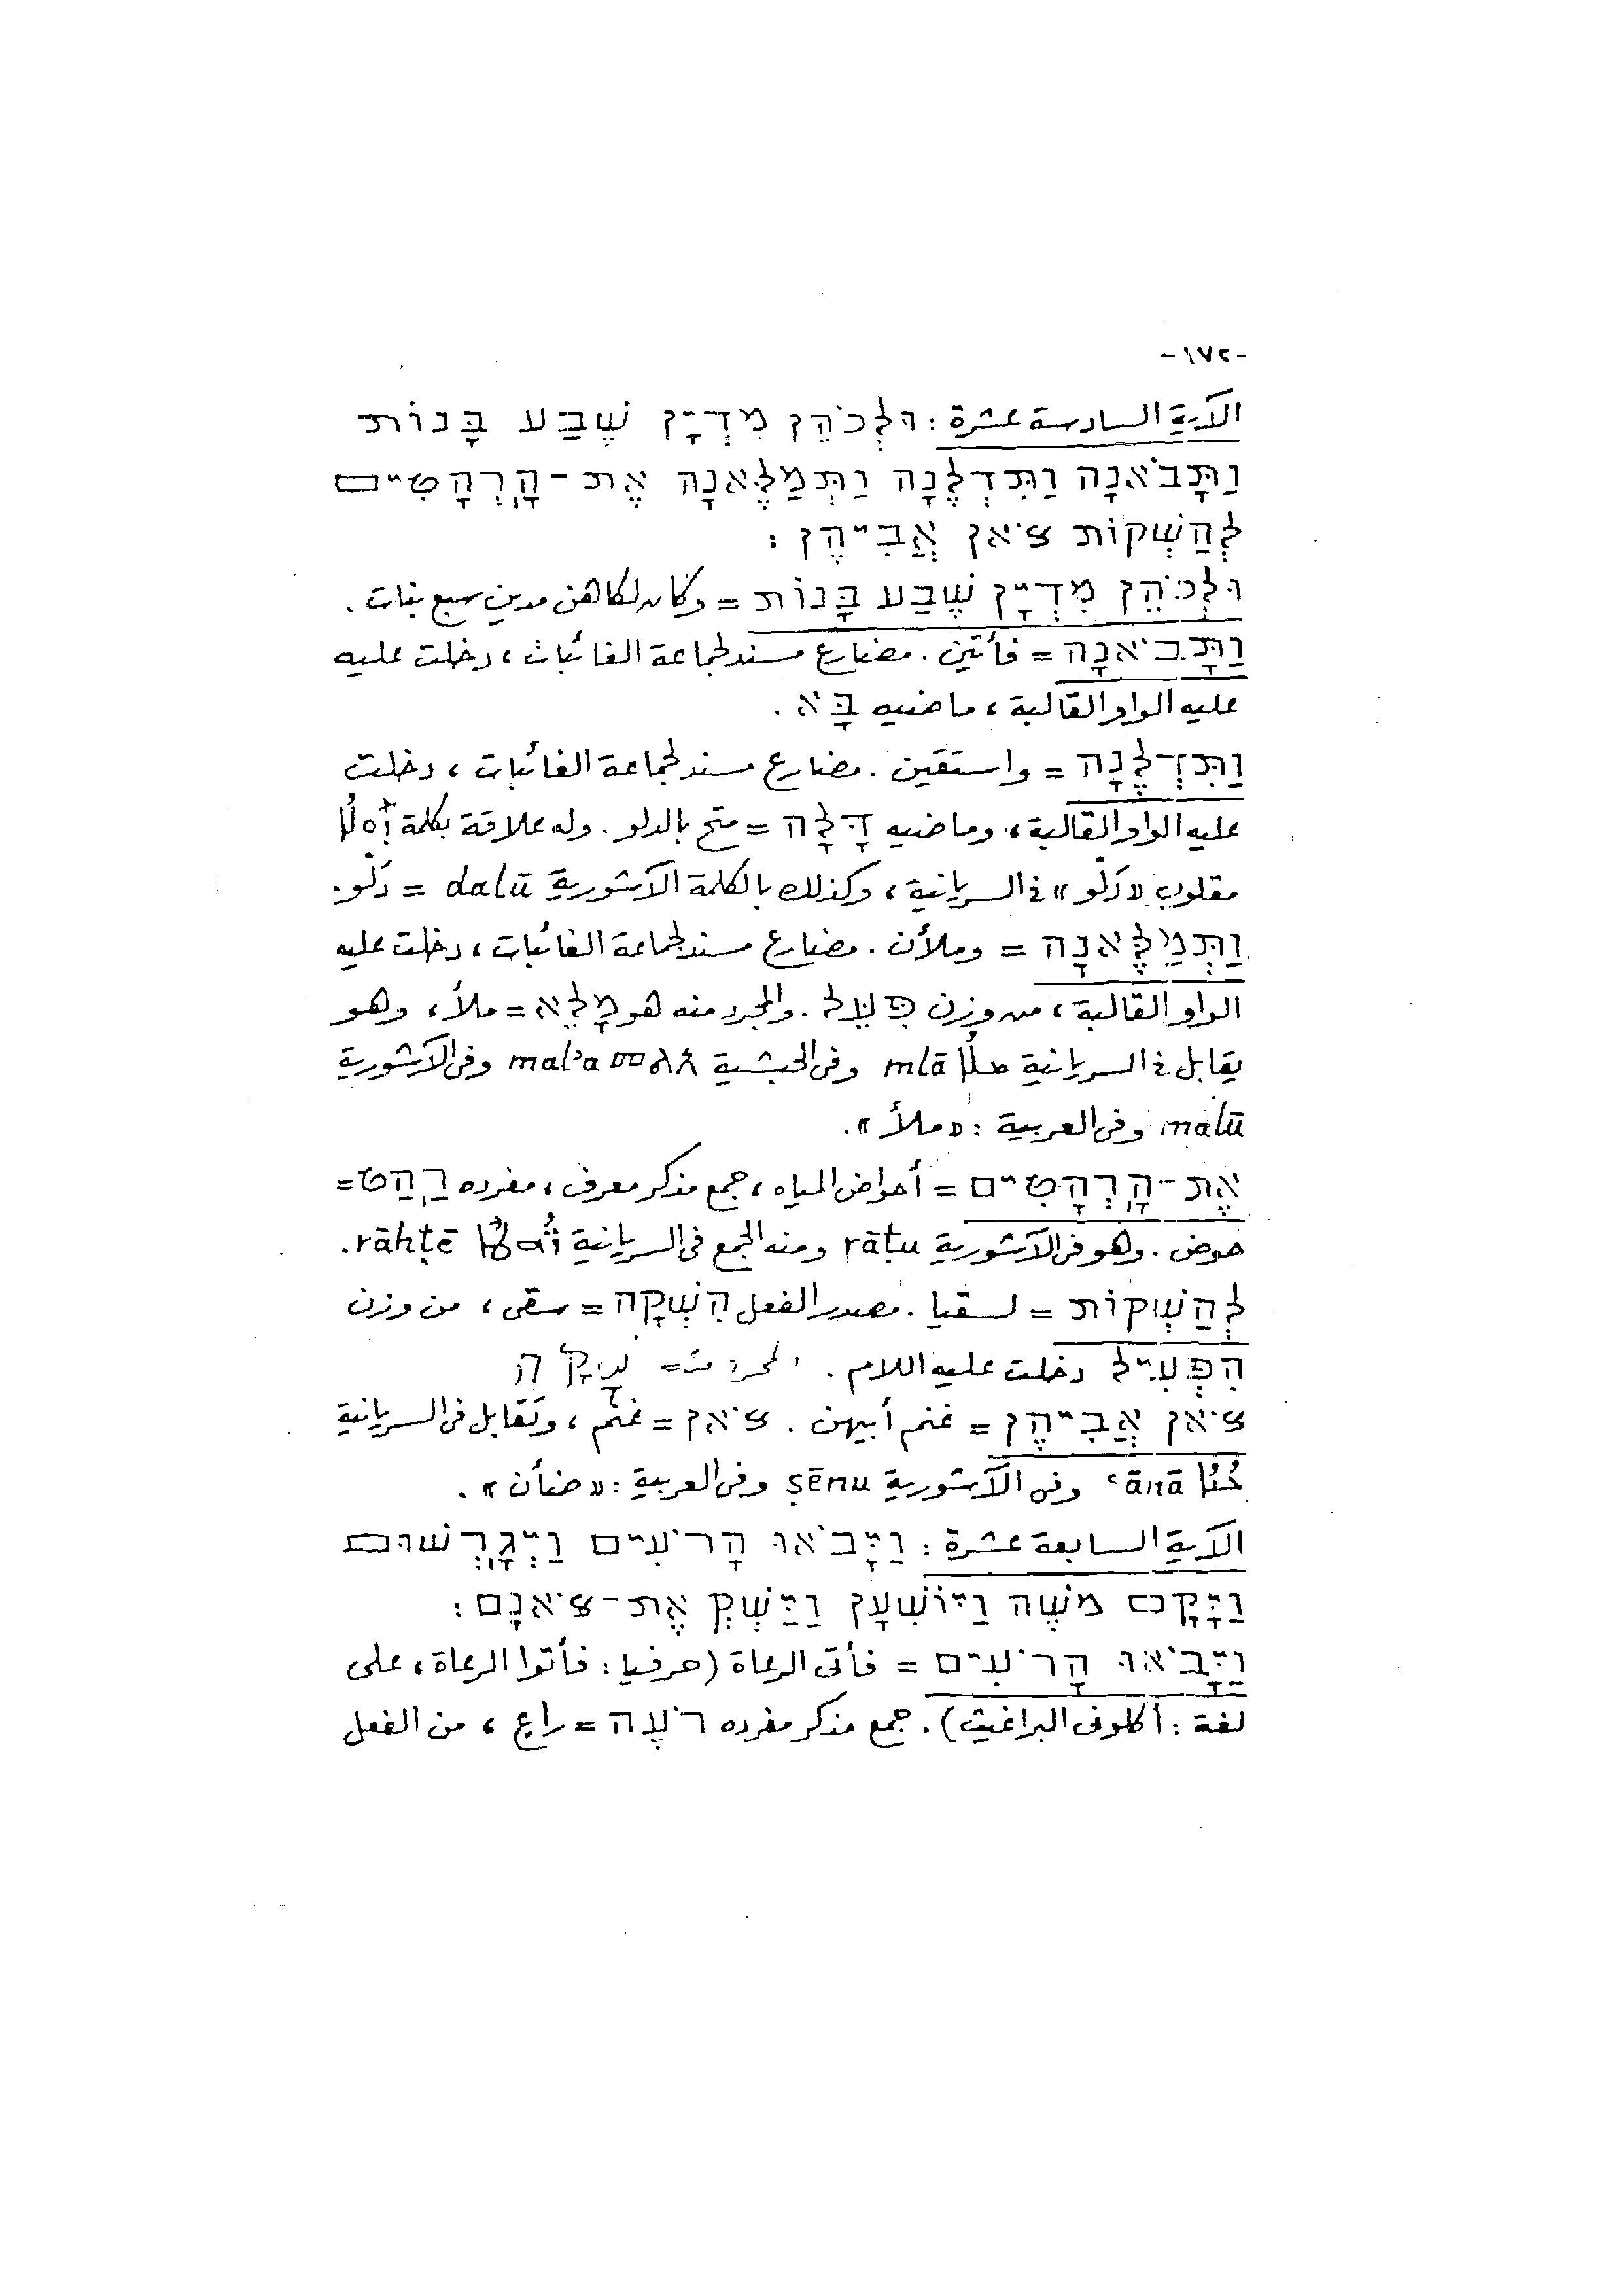 -١٧٢-
الآية السادسة عشرة : וּלְכֹהֵן מִדְיָן שֶׁבַע בָּנוֹת
וַתָּבֹאנָה וַתִּדְלֶנָה וַתְּמַלֶּאנָה אֶת-הָרְהָטִים
לְהַשְׁקוֹת צֹאן אֲבִיהֶן :
וּלְכֹהֵן מִדְיָן שֶׁבַע בָּנוֹת = وكان لكاهن مدين سبع بنات .
וַתָּבֹאנָה = فأتين . مضارع مسند لجماعة الغائبات ، دخلت عليه
عليه الواو القالبة ، ماضيه בָּא .
וַתִּדְלֶנָה = واستقين . مضارع مسند لجماعة الغائبات ، دخلت
عليه الواو القالبة ، وماضيه דָּלָה = متح بالدلو . وله علاقة بكلمة
مقلوب « دَلْو » فى السريانية ، وكذلك بالكلمة الآشورية dalū = دَلْو .
וַתְּמַלֶּאנָה = وملأن . مضارع مسند لجماعة الغائبات ، دخلت عليه
الواو القالبة ، من وزن פִּעֵל . والمجرد منه هو מָלֵא = ملأ ، وهو
يقابل فى السريانية ܡܠܳܐ mlā وفى الحبشية መልአ malʾa وفى الآشورية
malū وفى العربية : « ملأ » .
אֶת-הָרְהָטִים = أحواض المياه ، جمع مذكر معرف ، مفرده רַהַט =
حوض . وهو فى الآشورية rāṭu ومنه الجمع فى السريانية ܪܳܗܛܶܐ rāhṭē .
לְהַשְׁקוֹת = لسقيا . مصدر الفعل הִשְׁקָה = سقى ، من وزن
הִפְעִיל دخلت عليه اللام .
צֹאן אֲבִיהֶן = غنم أبيهن . צֹאן = غنم ، وتقابل فى السريانية
ܥܳܢܳܐ ʿānā وفى الآشورية ṣēnu وفى العربية : « ضأن » .
الآية السابعة عشرة : וַיָּבֹאוּ הָרֹעִים וַיְגָרְשׁוּם
וַיָּקָם מֹשֶׁה וַיּוֹשִׁעָן וַיַּשְׁקְ אֶת-צֹאנָם :
וַיָּבֹאוּ הָרֹעִים = فأتى الرعاة ( حرفيا : فأتوا الرعاة ، على
لغة : أكلونى البراغيث ) . جمع مذكر مفرده רֹעֶה = راعٍ ، من الفعل